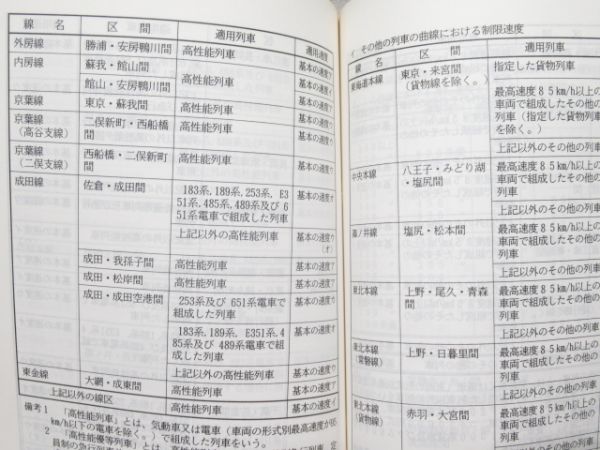 線　名 区　間 適用列車 適用速度
外房線 勝浦・安房鴨川間 高性能列車 基本の速度ウ
内房線 蘇我・館山間 高性能列車 基本の速度
館山・安房鴨川間 基本の速度
京葉線 東京・蘇我間 高性能列車 基本の速度
京葉線 二俣新町・西船橋 高性能列車 基本の速度
(高谷支線) 間
京葉線 西船橋・二俣新町 高性能列車 基本の速度
(二俣支線) 間
成田線 佐倉・成田間 183系,189系,253系, E3 基本の速度
51系,485系,489系及び 6
51系電車で組成した列車
上記以外の高性能列車 基本の速度
(オ)
成田・我孫子間 高性能列車 基本の速度
成田・松岸間 高性能列車 基本の速度
成田・成田空港間 253系及び 651系電車で 基本の速度
組成した列車
183系, 189系, E351系, 4 基本の速度
85系及び 489系電車で組
成した列車
上記以外の高性能列車 基本の速度
東金線 大網・成東間 高性能列車 基本の速度
上記以外の線区 高性能列車 基本の速度
備考1　「高性能列車」とは、気動車又は電車（車両の形式別最高速度が85
km/h以下の電車を除く。）で組成した列車をいう。
2　「高性能優等列車」とは、
イ　その他の列車の曲線における制限速度
線　名 区　間 適用列車
東海道本線 東京・来宮間 指定した貨物列車
(貨物線を除く。) 最高速度８５km/h以上の
車両で組成したその他の
列車（指定した貨物列車
を除く。）
上記以外のその他の列車
中央本線 八王子・みどり湖 最高速度８５km/h以上の
・塩尻間 車両で組成したその他の
列車
上記以外のその他の列車
篠ノ井線 塩尻・松本間 最高速度８５km/h以上の
車両で組成したその他の
列車
上記以外のその他の列車
東北本線 上野・尾久・青森 最高速度８５km/h以上の
間 車両で組成したその他の
列車
上記以外のその他の列車
東北本線 上野・日暮里間 最高速度８５km/h以上の
(貨物線) 車両で組成したその他の
列車
上記以外のその他の列車
東北本線 赤羽・大宮間 最高速度８５km/h以上の
(貨物線) 車両で組成したその他の
列車
上記以外のその他の列車